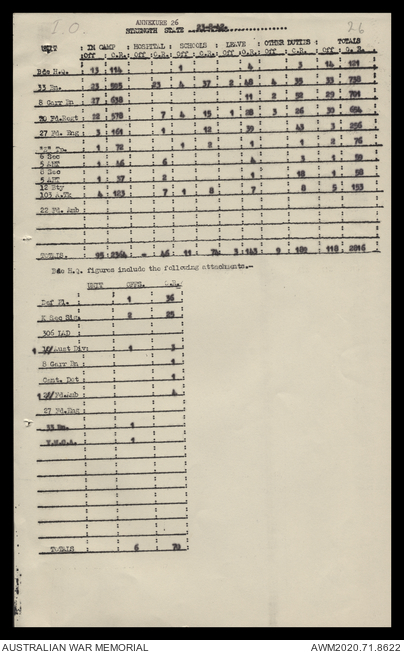 I.O.
ANNEXURE 26
STRENGTH STATE
26
UNIT : IN CAMP : HOSPITAL : SCHOOLS : LEAVE : OTHER DUTIES : TOTALS
Off : O.R. : Off : O.R. : Off : O.R. : Off : O.R. : Off : O.R. : Off : O.R.
Bde H.Q. : 13 : 114 : 1 : 4 : 3 : 14 : 121
33 Bn. : 23 : 4 : 37 : 2 : 40 : 4 : 35 : 33 : 738
8 Garr Bn : 27 : 638 : 11 : 2 : 52 : 29 : 701
: 22 : 578 : 7 : 4 : 15 : 1 : 28 : 3 : 26 : 30 : 654
27 Fd. Eng : 3 : 161 : 1 : 12 : 39 : 43 : 3 : 256
: 1 : 72 : 1 : 2 : 1 : 1 : 2 : 76
6 Sec
5 AHT : 1 : 46 : 6 : 4 : 3 : 1 : 59
8 Sec
5 AHT : 1 : 37 : 2 : 1 : 18 : 1 : 58
12 Bty
103 A.Tk : 4 : 123 : 7 : 1 : 8 : 7 : 8 : 5 : 153
22 Fd. Amb
TOTALS. : 95 : 2364 : - : 46 : 11 : 74 : 3 : 143 : 9 : 189 : 118 : 2816
Bde H.Q. figures include the following attachments.-
UNIT : OFFR. : O.R.
Def Pl. : 1 : 36
K Sec Sig. : 2 : 25
306 LAD
1 Aust Div : 1 : 3
8 Garr Bn : 1
Cant. Det : 1
Fd.Amb : 4
27 Fd.Eng
33 Bn. : 1
Y.M.C.A. : 1
TOTALS : 6 : 70
AUSTRALIAN WAR MEMORIAL
AWM2020.71.8622